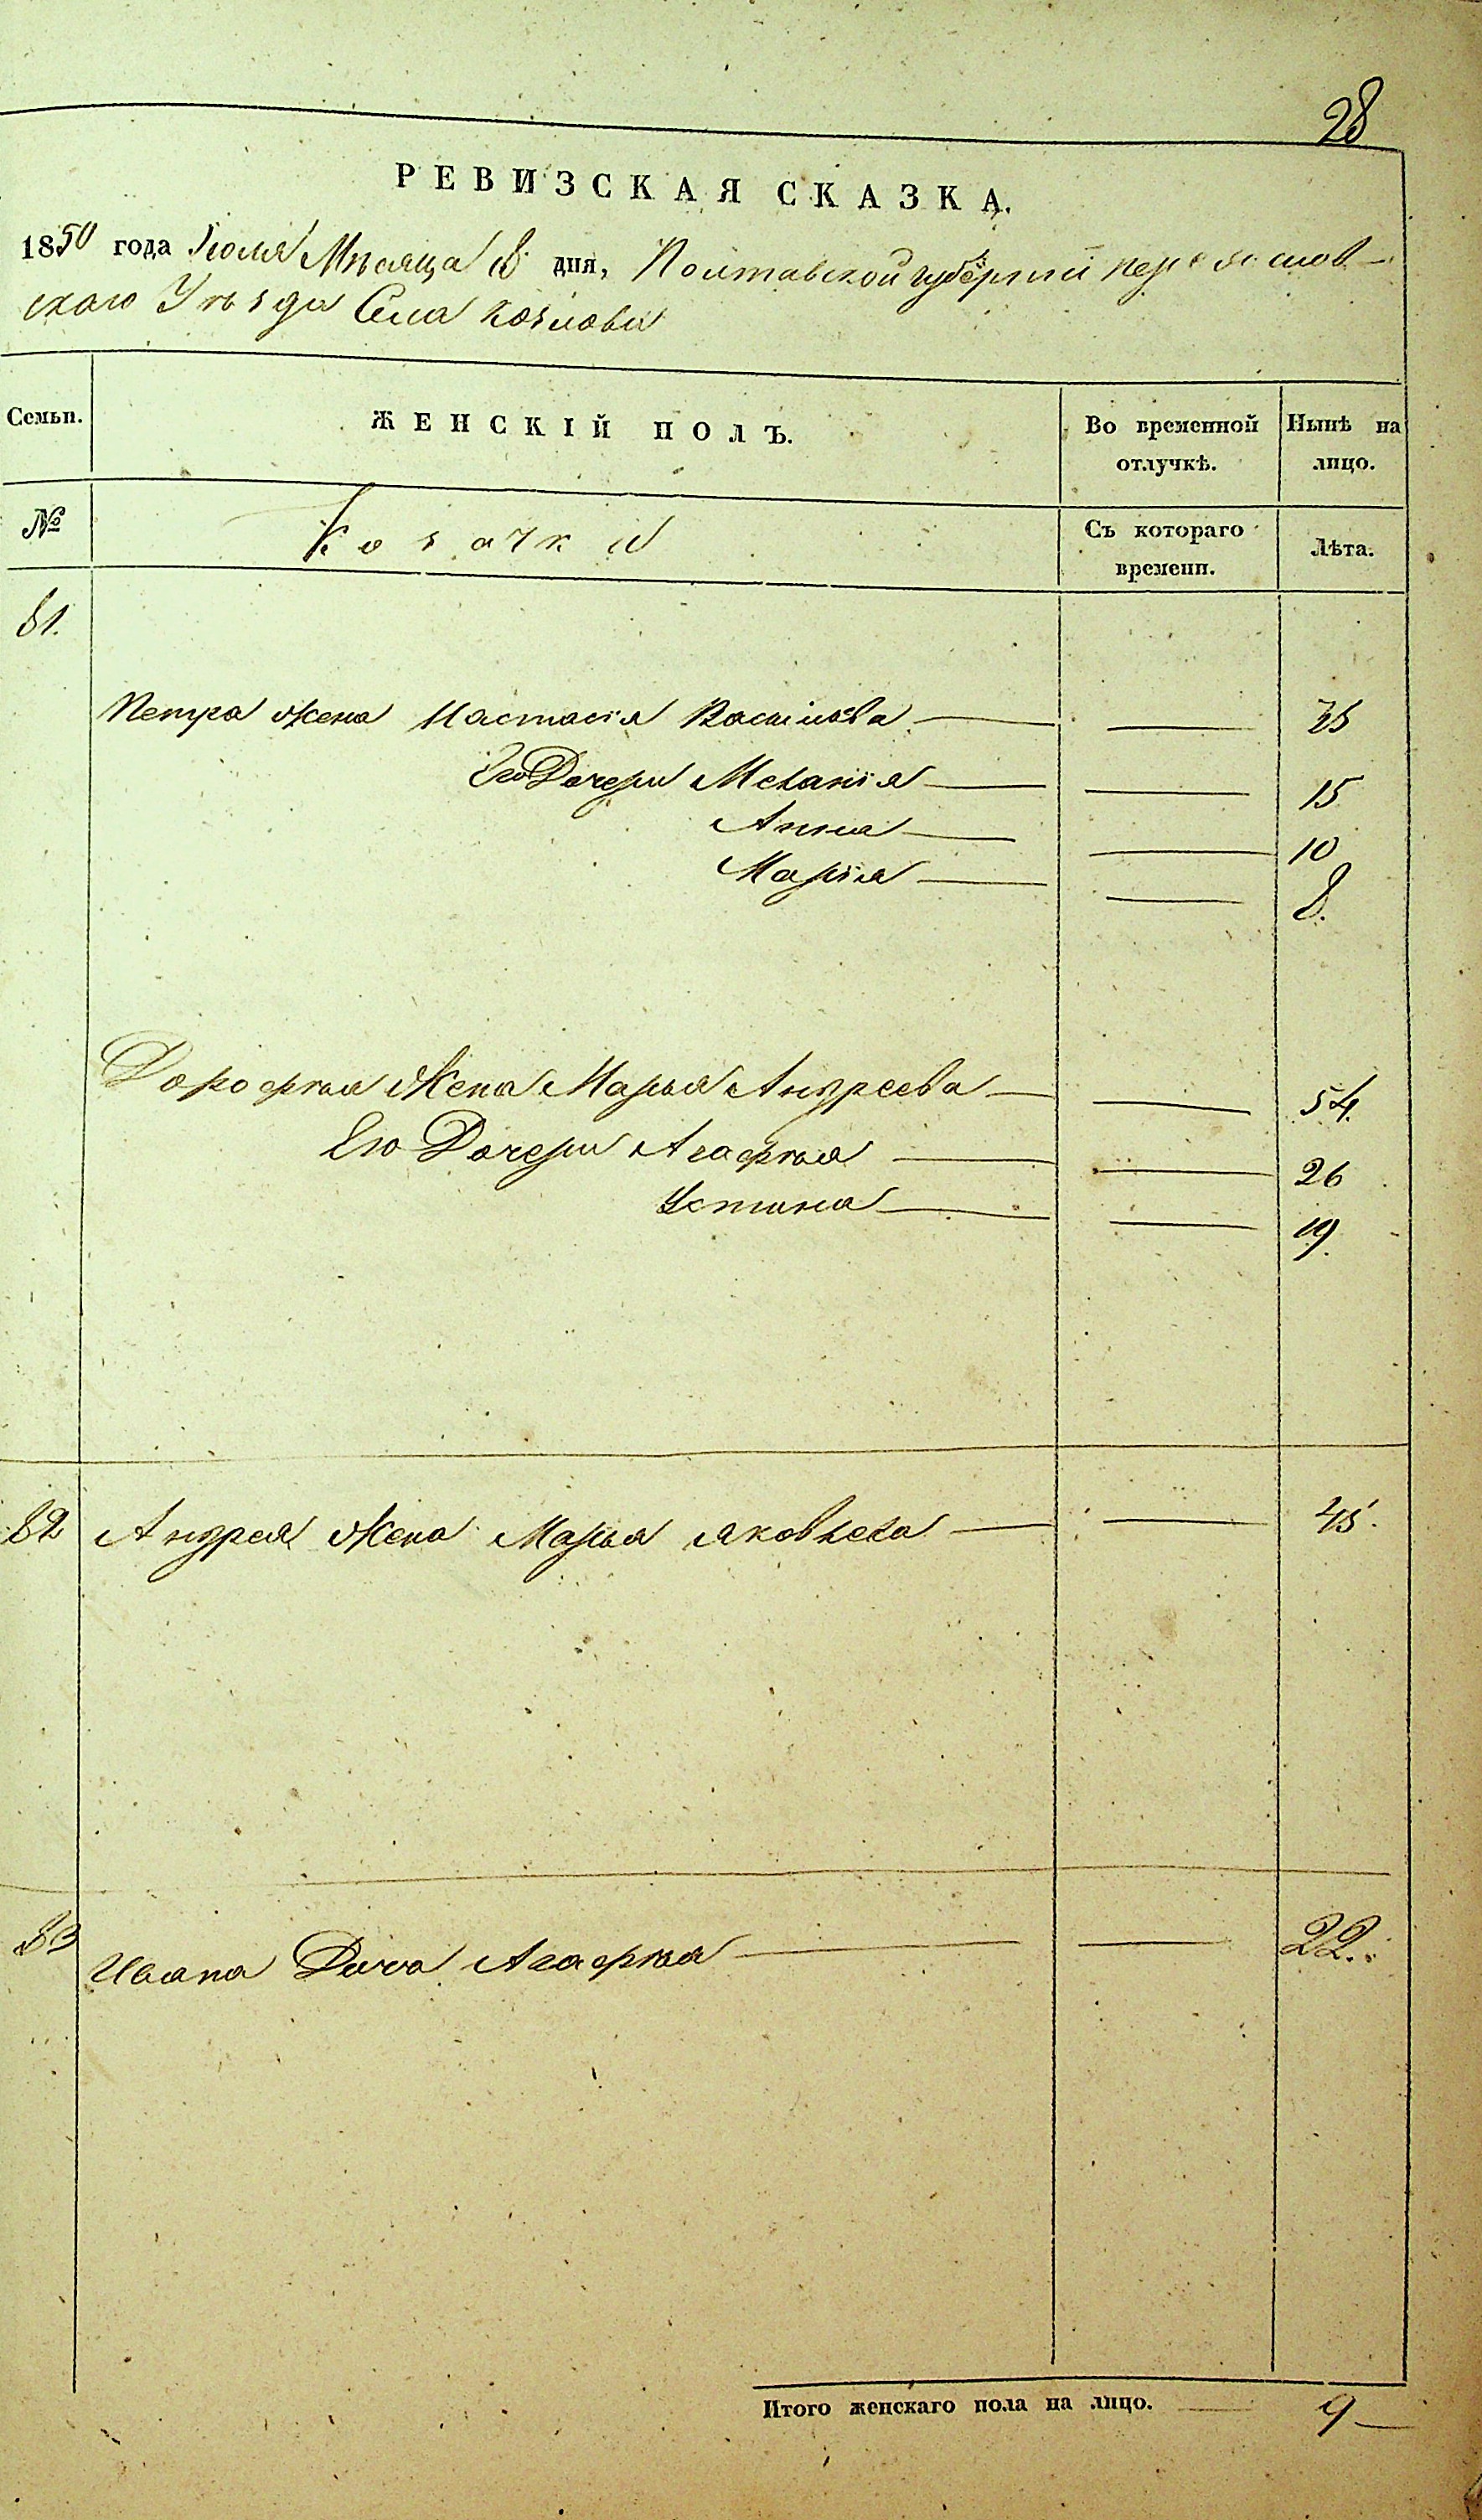 28
РЕВИЗСКАЯ СКАЗКА.
1850 года Іюля Мѣсяца 8 дня, Полтавской губерніи Переяслов-
скаго Уѣзда Села Козлова
Семьи. ЖЕНСКІЙ ПОЛЪ. Во временной отлучкѣ. Нынѣ на лицо.
№ Козачки Съ котораго времени. Лѣта.
81.
Петра жена Настасія Васильева 35
Его Дочери Меланія 15
Анна 10
Марія 8.
Дорофѣя Жена Марья Андреева 54.
Его Дочери Агафѣя 26
Устина 19.
82 Андрея Жена Марья Яковлева 45.
83 Ивана Дочь Агафѣя 22.
Итого женскаго пола на лицо. 9